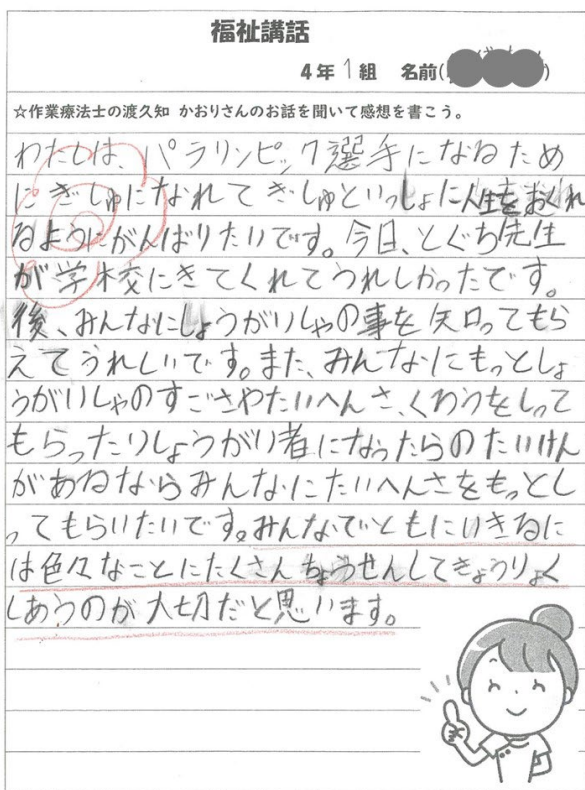 福祉講話
4年1組 名前( )
☆作業療法士の渡久知 かおりさんのお話を聞いて感想を書こう。
わたしは、パラリンピック選手になるため
にぎしゅになれてぎしゅといっしょに人生をおくれ
るようにがんばりたいです。今日、とぐち先生
が学校にきてくれてうれしかったです。
後、みんなにしょうがいしゃの事を知ってもら
えてうれしいです。また、みんなにもっとしょ
うがいしゃのすごさやたいへんさ、くわうをしって
もらったりしょうがい者になったらのたいけん
があるならみんなにたいへんさをもっとし
ってもらいたいです。みんなでいともにいきるに
は色々なことにたくさんちょうせんしてきょうりょく
しあうのが大切だと思います。